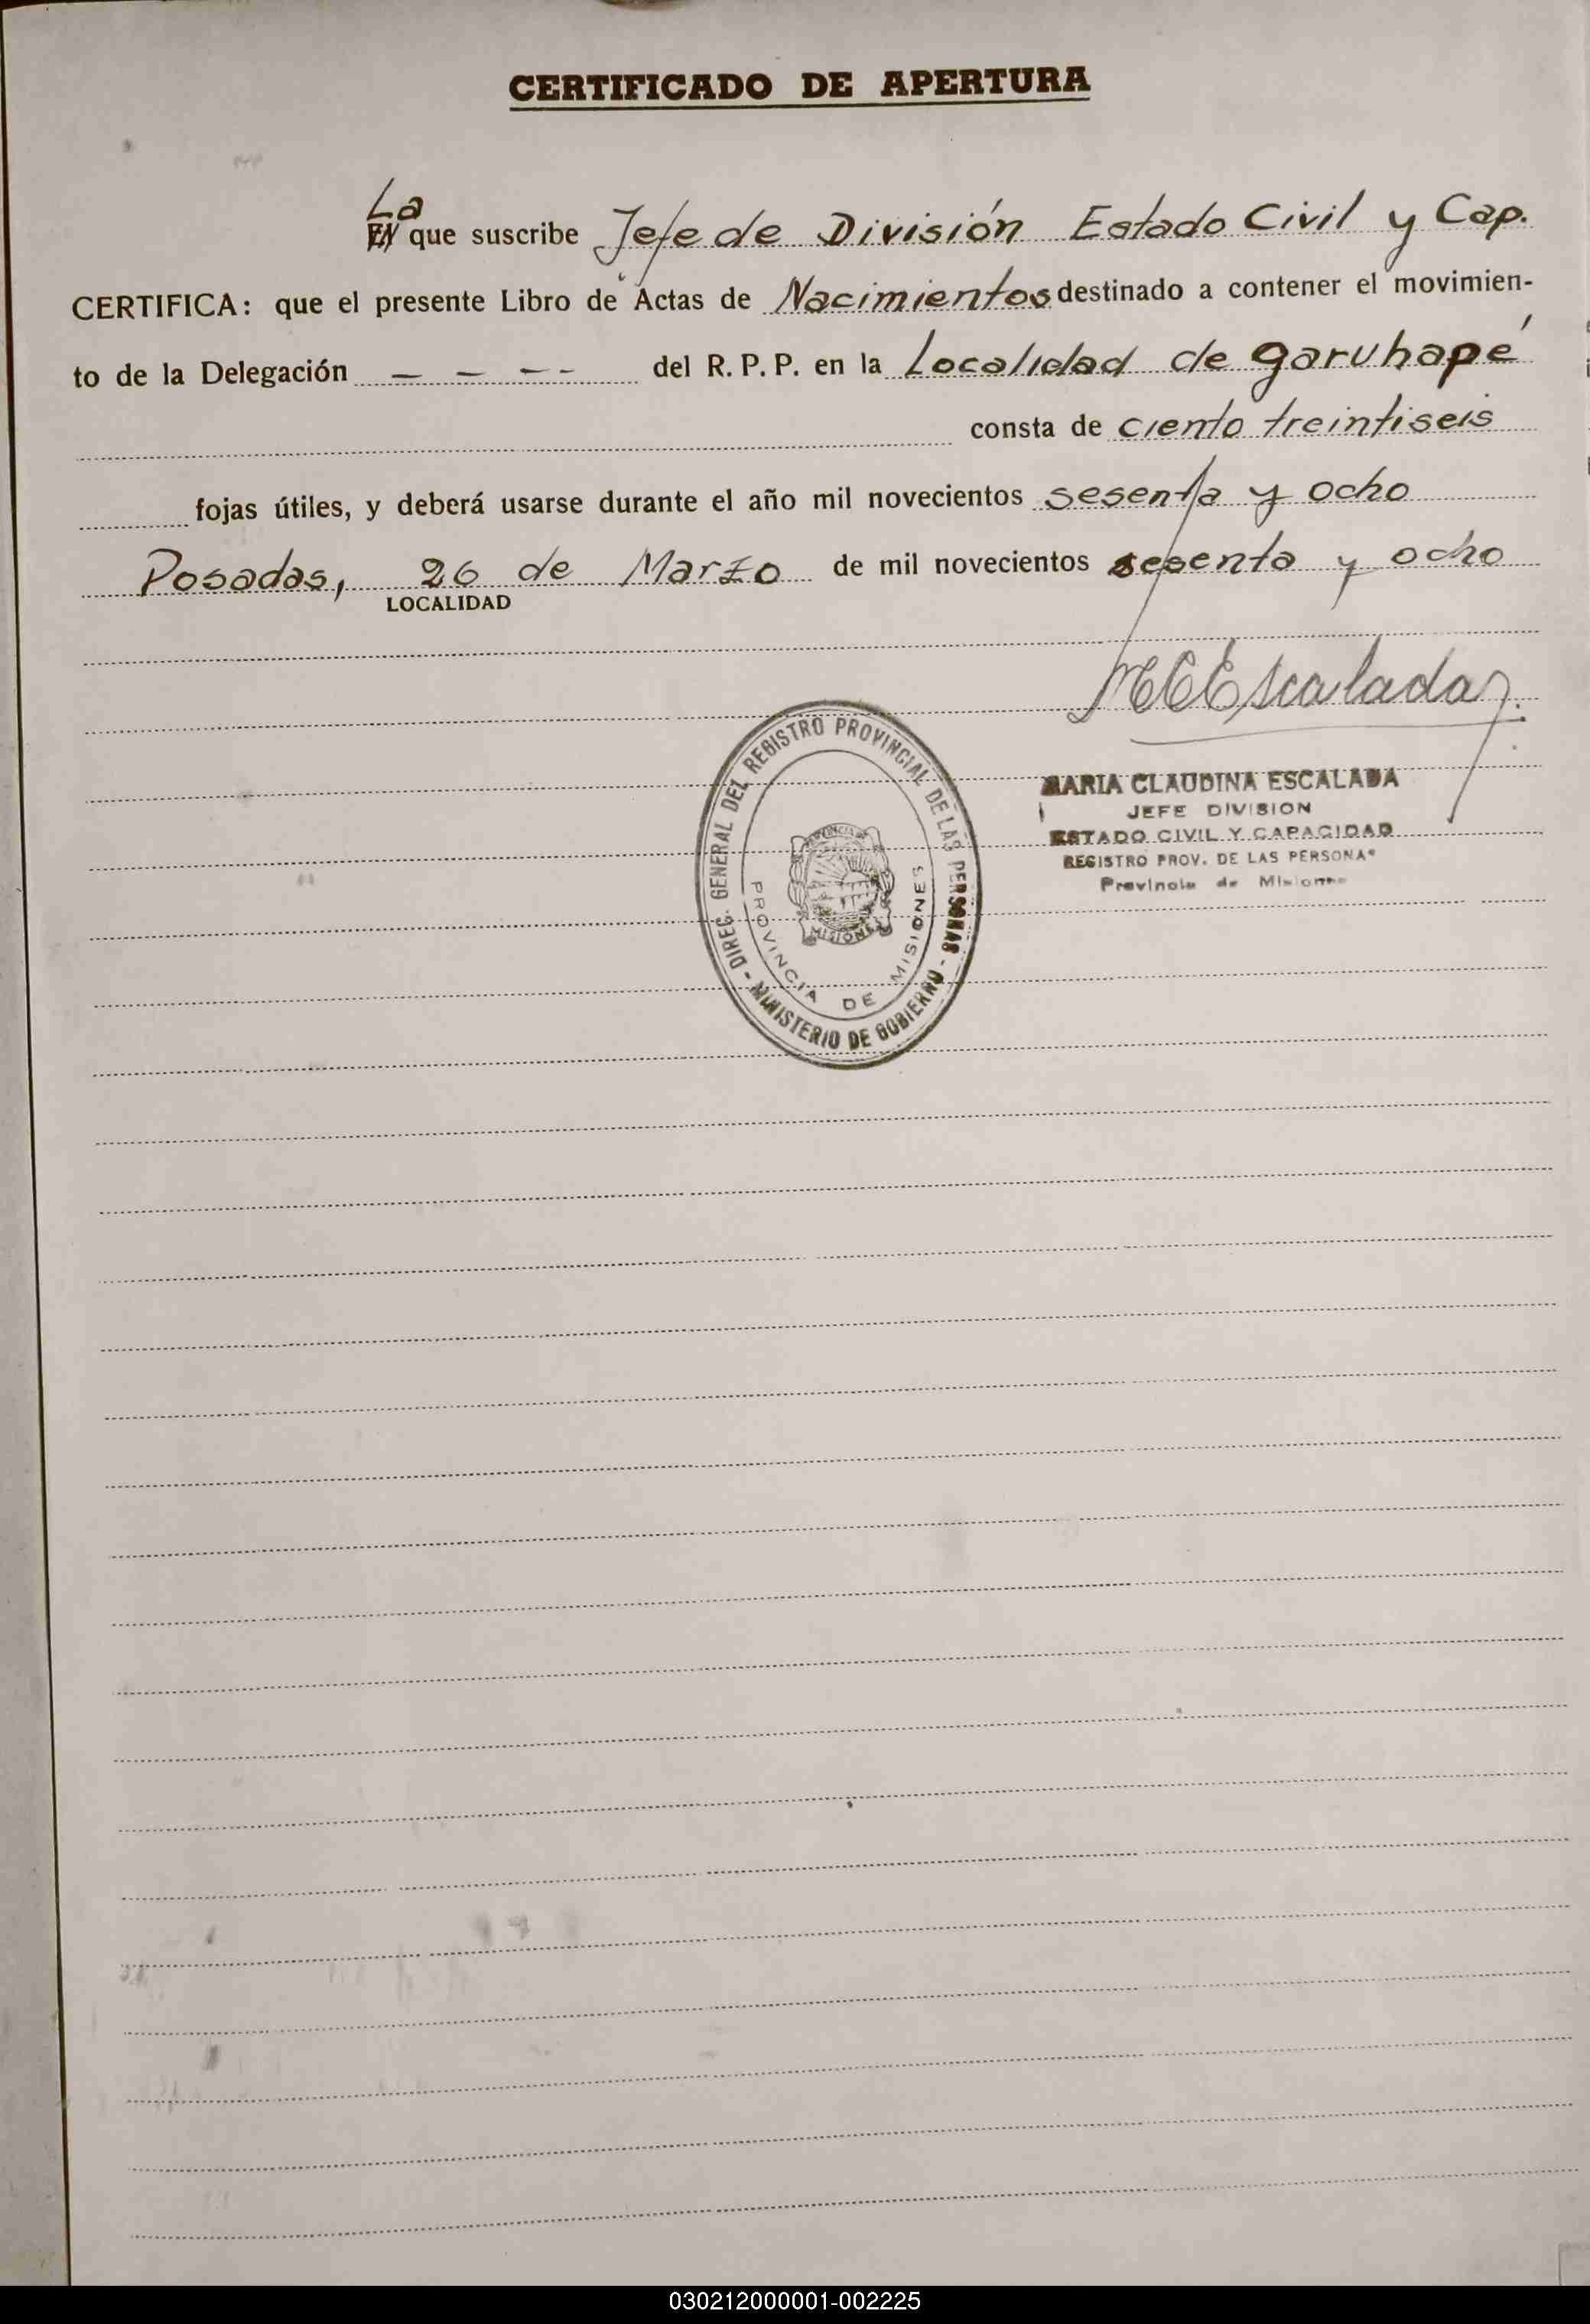 CERTIFICADO DE APERTURA
La
El que suscribe Jefe de División Estado Civil y Cap.
CERTIFICA: que el presente Libro de Actas de Nacimientos destinado a contener el movimien-
to de la Delegación — — - - del R. P. P. en la Localidad de garuhapé
consta de ciento treintiseis
fojas útiles, y deberá usarse durante el año mil novecientos sesenta y ocho
Posadas, 26 de Marzo de mil novecientos sesenta y ocho
LOCALIDAD
MCEscalada
MARIA CLAUDINA ESCALADA
JEFE DIVISION
ESTADO CIVIL Y CAPACIDAD
REGISTRO PROV. DE LAS PERSONAS
Provincia de Misiones
DIREC. GENERAL DEL REGISTRO PROVINCIAL DE LAS PERSONAS - MINISTERIO DE GOBIERNO -
PROVINCIA DE MISIONES
PROVINCIA
MISIONES
030212000001-002225